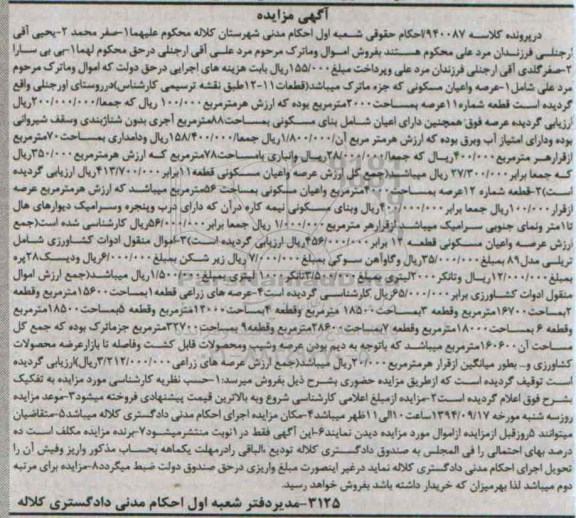 آگهی مزایده
درپرونده کلاسه ۹۴۰۰۸۷/احکام حقوقی شعبه اول احکام مدنی شهرستان کلاله محکوم علیهما۱-صفر محمد ۲-یحیی آقی
ارجنلی فرزندان مرد علی محکوم هستند بفروش اموال وماترک مرحوم مرد علی آقی ارجنلی درحق محکوم لهما۱-بی بی سارا
۲-صفرگلدی آقی ارجنلی فرزندان مرد علی وپرداخت مبلغ۱۵۵/۰۰۰ریال بابت هزینه های اجرایی درحق دولت که اموال وماترک مرحوم
مرد علی شامل۱-عرصه واعیان مسکونی که جزء ماترک میباشد(قطعات۱۱-۱۲طبق نقشه ترسیمی کارشناس)درروستای اورجنلی واقع
گردیده است قطعه شماره۱۱عرصه بمساحت۲۰۰۰مترمربع بوده که ارزش هرمترمربع۱۰۰/۰۰۰ ریال که جمعا۲۰۰/۰۰۰/۰۰۰ریال
ارزیابی گردیده عرصه فوق همچنین دارای اعیان شامل بنای مسکونی بمساحت۸۸مترمربع آجری بدون شناژبندی وسقف شیروانی
بوده ودارای امتیاز آب وبرق بوده که ارزش هرمتر مربع آن۱/۸۰۰/۰۰۰ریال جمعا۱۵۸/۴۰۰/۰۰۰ریال ودامداری بمساحت۷۰مترمربع
ازقرارهر مترمربع۴۰۰/۰۰۰ریال که جمعا۲۸/۰۰۰/۰۰۰ریال وانباری بامساحت۷۸مترمربع که ارزش هرمترمربع۳۵۰/۰۰۰ریال
که جمعا برابر۲۷/۳۰۰/۰۰۰ ریال میباشد(جمع کل ارزش عرصه واعیان مسکونی قطعه۱۱برابر۴۱۳/۷۰۰/۰۰۰ریال ارزیابی گردیده
است)۲-قطعه شماره ۱۲عرصه بمساحت۴۰۰۰مترمربع واعیان مسکونی بمساحت ۵۶مترمربع میباشد که ارزش هرمترمربع عرصه
ازقرار۱۰۰/۰۰۰ریال جمعا برابر۴۰۰/۰۰۰/۰۰۰ریال وبنای مسکونی نیمه کاره درآن که دارای درب وپنجره وسرامیک دیوارهای هال
تا۱متر ونمای جنوبی سرامیک میباشد ازقرارهر مترمربع۱/۰۰۰/۰۰۰ ریال جمعا برابر۵۶/۰۰۰/۰۰۰ریال کارشناسی شده است(جمع
ارزش عرصه واعیان مسکونی قطعه ۱۲ برابر۴۵۶/۰۰۰/۰۰۰ریال ارزیابی گردیده است)۳-اموال منقول ادوات کشاورزی شامل
تریلی مدل۸۹ بمبلغ۳۵/۰۰۰/۰۰۰ریال وگاوآهن سوکی بمبلغ۷/۰۰۰/۰۰۰ریال زیر شکن بمبلغ۶/۰۰۰/۰۰۰ریال ودیسک۲۸پره
بمبلغ۱۲/۰۰۰/۰۰۰ریال وتانکر۲۰۰۰لیتری بمبلغ۳/۵۰۰/۰۰۰تانکر۱۰۰۰ لیتری بمبلغ۱/۵۰۰/۰۰۰ریال میباشد(جمع ارزش اموال
منقول ادوات کشاورزی برابر۶۵/۰۰۰/۰۰۰ریال کارشناسی گردیده است۴-عرصه های زراعی قطعه۱بمساحت۱۵۶۰۰مترمربع وقطعه
۲بمساحت۱۶۷۰۰مترمربع وقطعه ۳بمساحت۱۸۵۰۰ مترمربع وقطعه ۴بمساحت۱۲۰۰۰مترمربع وقطعه ۵بمساحت۱۸۵۰۰مترمربع
وقطعه ۶ بمساحت۱۸۰۰۰مترمربع وقطعه ۷بمساحت۲۸۶۰۰مترمربع وقطعه۹ بمساحت۳۲۷۰۰مترمربع جزماترک بوده که جمع کل
مساحت آن۱۶۰۶۰۰مترمربع میباشد که باتوجه به دیم بودن عرصه وشیب ومحصولات قابل کشت وفاصله تا بازارعرضه محصولات
کشاورزی و.. بطور میانگین ازقرار هرمترمربع۲۰/۰۰۰ریال میباشد(جمع ارزش عرصه های زراعی۳/۲۱۲/۰۰۰/۰۰۰ریال)ارزیابی گردیده
است توقیف گردیده است که ازطریق مزایده حضوری بشرح ذیل بفروش میرسد:۱-حسب نظریه کارشناسی مورد مزایده به تفکیک
بشرح فوق اعلام گردیده است۲-مزایده ازمبلغ اعلامی کارشناسی شروع وبه بالاترین قیمت پیشنهادی فروخته میشود۳-موعد مزایده
روزسه شنبه مورخه ۱۳۹۴/۰۹/۱۷ساعت۱۰الی۱۱ظهر میباشد۴-مکان مزایده اجرای احکام مدنی دادگستری کلاله میباشد۵-متقاضیان
میتوانند ۵روزقبل ازمزایده ازاموال مورد مزایده دیدن نمایند۶-این آگهی فقط در۱نوبت منتشرمیشود۷-برنده مزایده مکلف است ده
درصد بهای احتمالی را فی المجلس به صندوق دادگستری کلاله تودیع ،الباقی رادرمهلت یکماهه بحساب مذکور واریز وفیش آن را
تحویل اجرای احکام مدنی دادگستری کلاله نماید درغیر اینصورت مبلغ واریزی درحق صندوق دولت ضبط میگردد۸-مزایده برای مرتبه
دوم میباشد لذا بهرمیزان که خریدار داشته باشد بفروش خواهد رسید.
۳۱۲۵-مدیردفتر شعبه اول احکام مدنی دادگستری کلاله